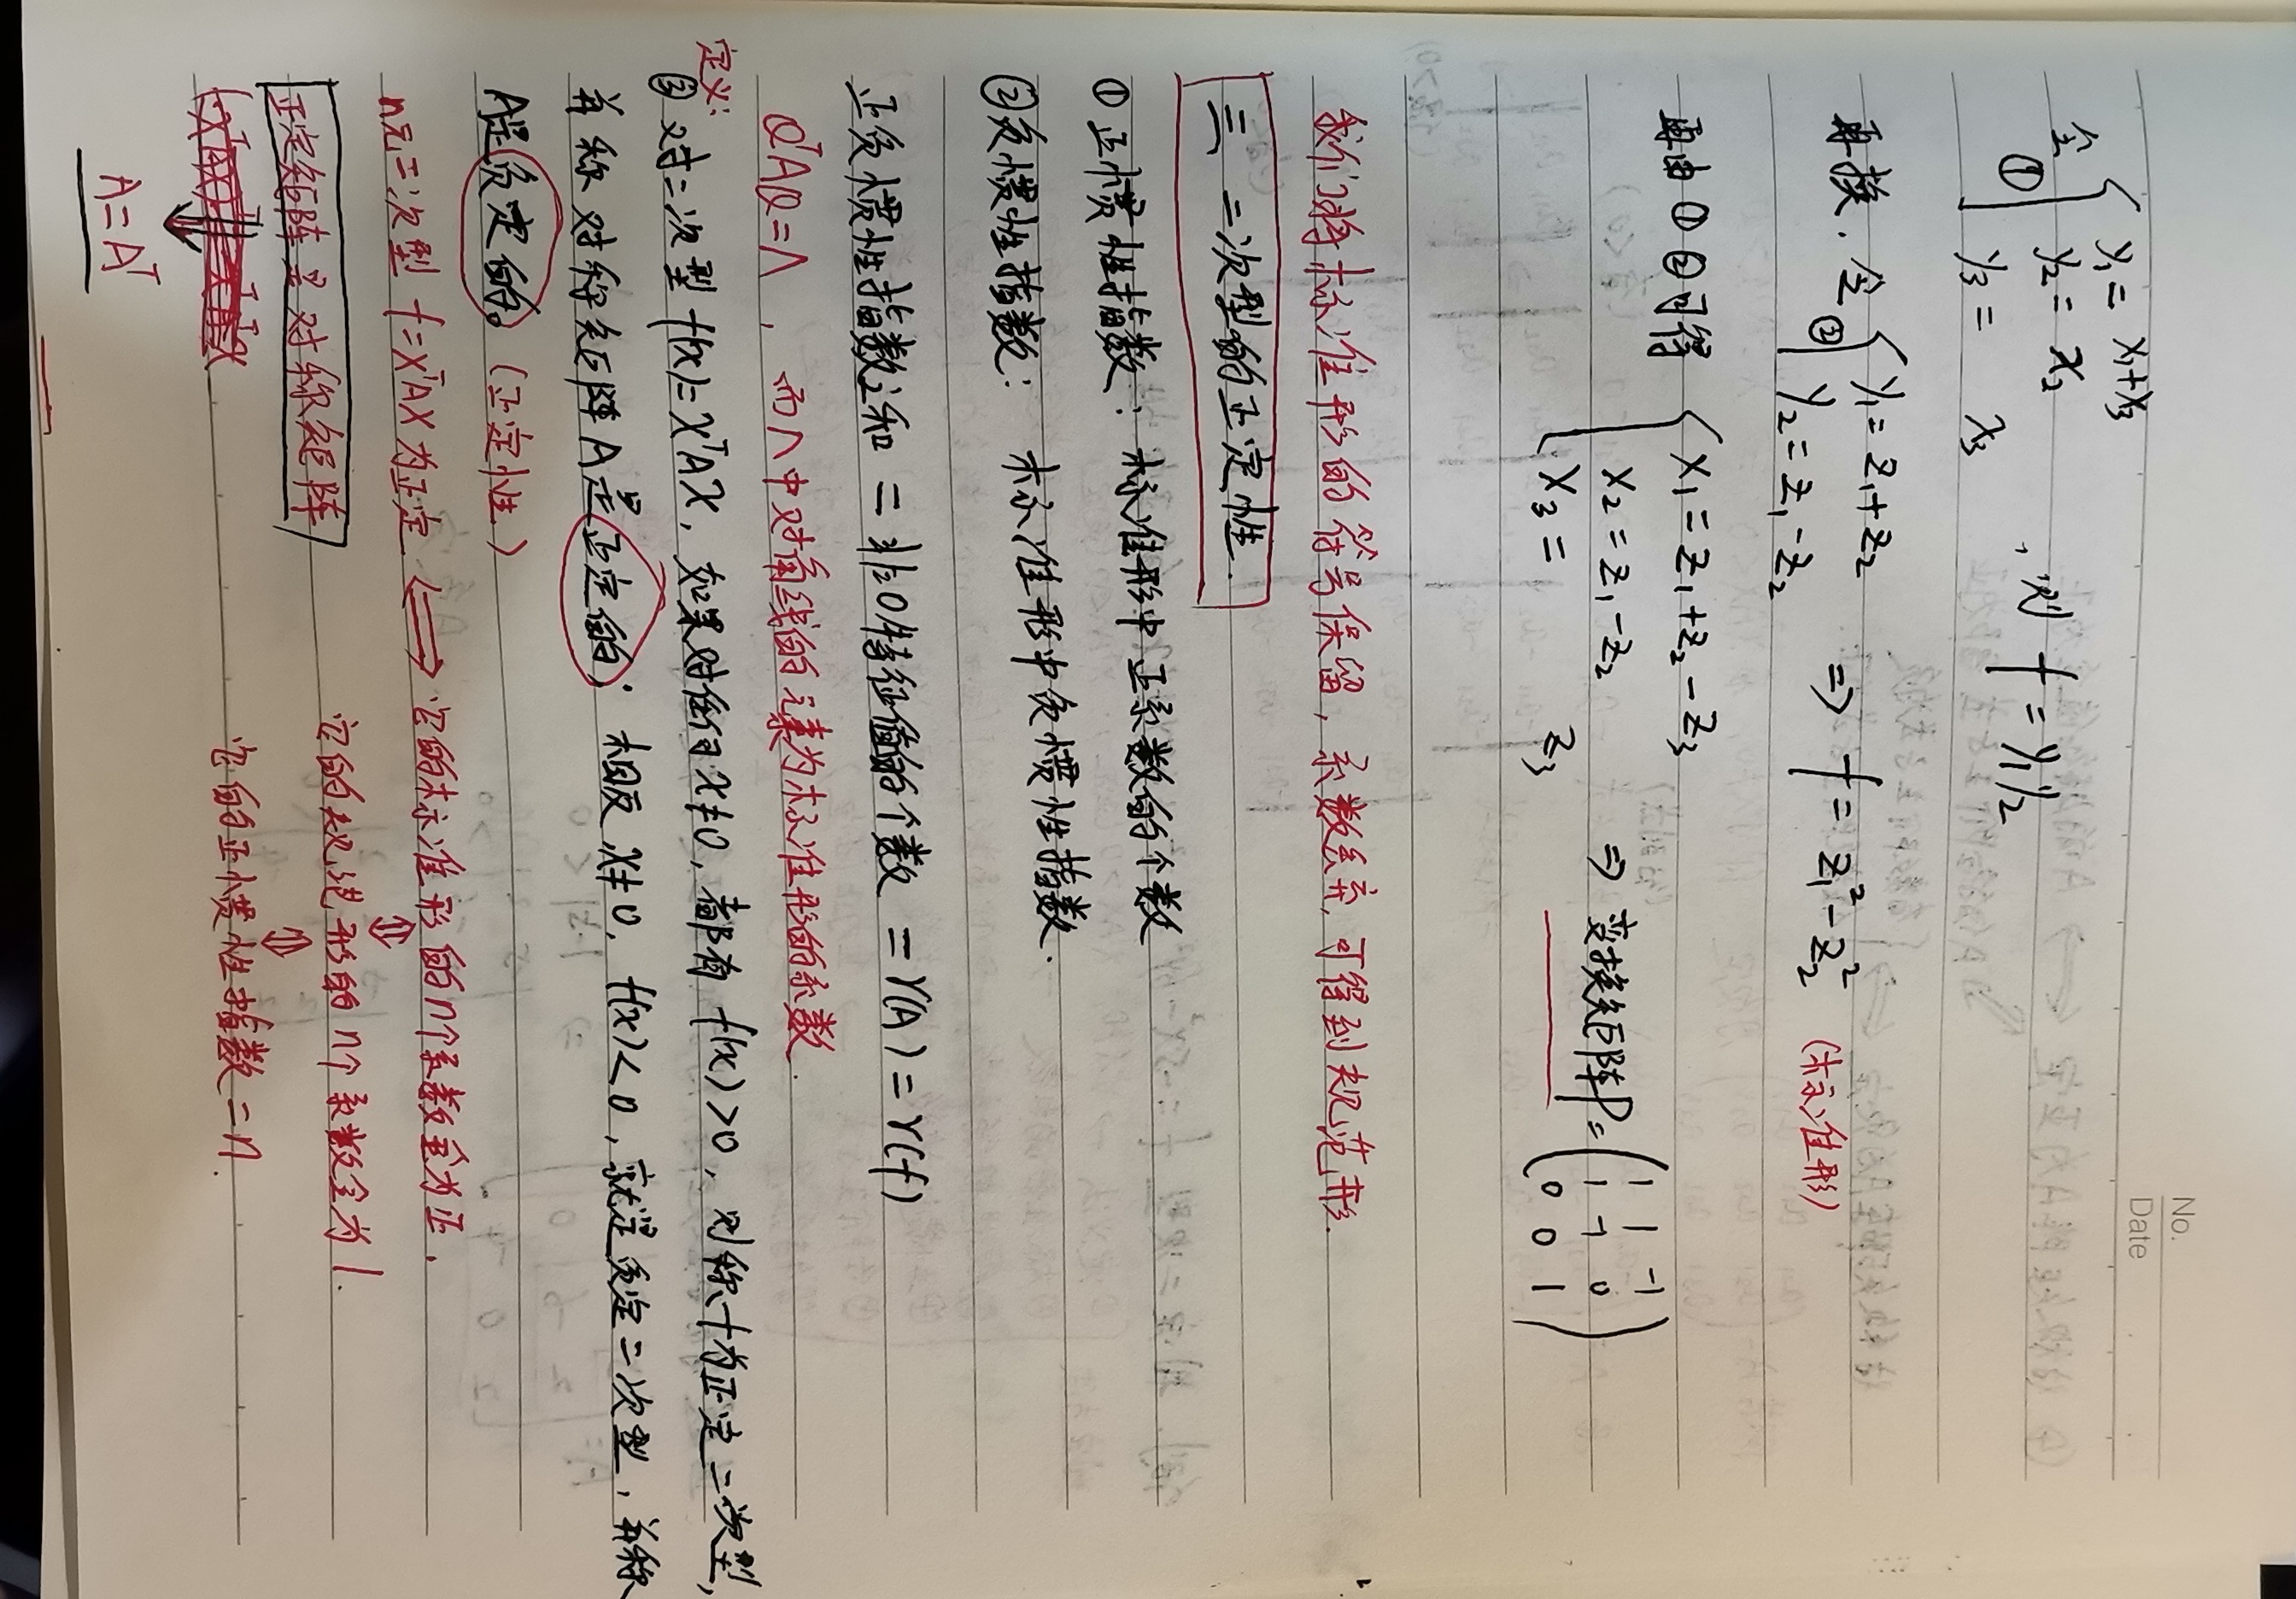 No.
Date
令① { y₁ = x₁+x₃
y₂ = x₂ ，则 f = y₁y₂
y₃ = x₃
再换. 令② { y₁ = z₁+z₂
y₂ = z₁-z₂ ⇒ f = z₁²-z₂² (标准形)
再由①②可得 { x₁ = z₁+z₂-z₃
x₂ = z₁-z₂
x₃ = z₃ ⇒ 变换矩阵P = ( 1 1 -1
1 -1 0
0 0 1 )
我们将标准形的符号保留，系数丢弃，可得到规范形.
三 二次型的正定性.
①正惯性指数: 标准形中正系数的个数
②负惯性指数: 标准形中负惯性指数.
正负惯性指数之和 = 非0特征值的个数 = r(A) = r(f)
QᵀAQ=Λ ，而Λ中对角线的元素为标准形的系数.
定义:
③对二次型 f(x)=XᵀAX，如果对任何x≠0，都有 f(x)>0，则称f为正定二次型,
并称对称矩阵A是正定的; 相反 x≠0, f(x)<0, 就是负定二次型，并称
A是负定的。(正定性)
n元二次型 f=XᵀAX为正定 ⟺ 它的标准形的n个系数全为正.
⇕
它的规范形的n个系数全为1.
⇕
它的正惯性指数=n.
正定矩阵是对称矩阵
⇓
A=Aᵀ